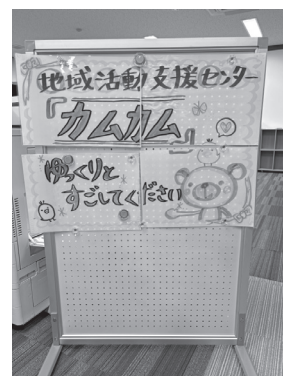 地域活動支援センター
『カムカム』
ゆっくりと
すごしてください